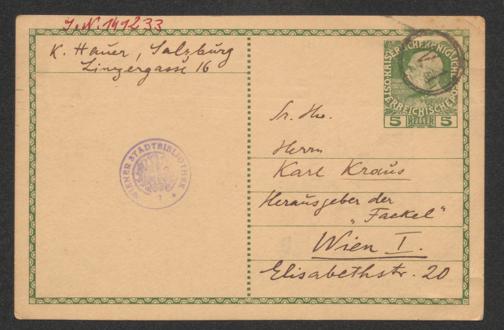 J. N. 141233
K. Hauer, Salzburg
Linzergasse 16
WIENER STADTBIBLIOTHEK
5 HELLER 5
Sr. Hw.
Herrn
Karl Kraus
Herausgeber der
"Fackel"
Wien I.
Elisabethstr. 20